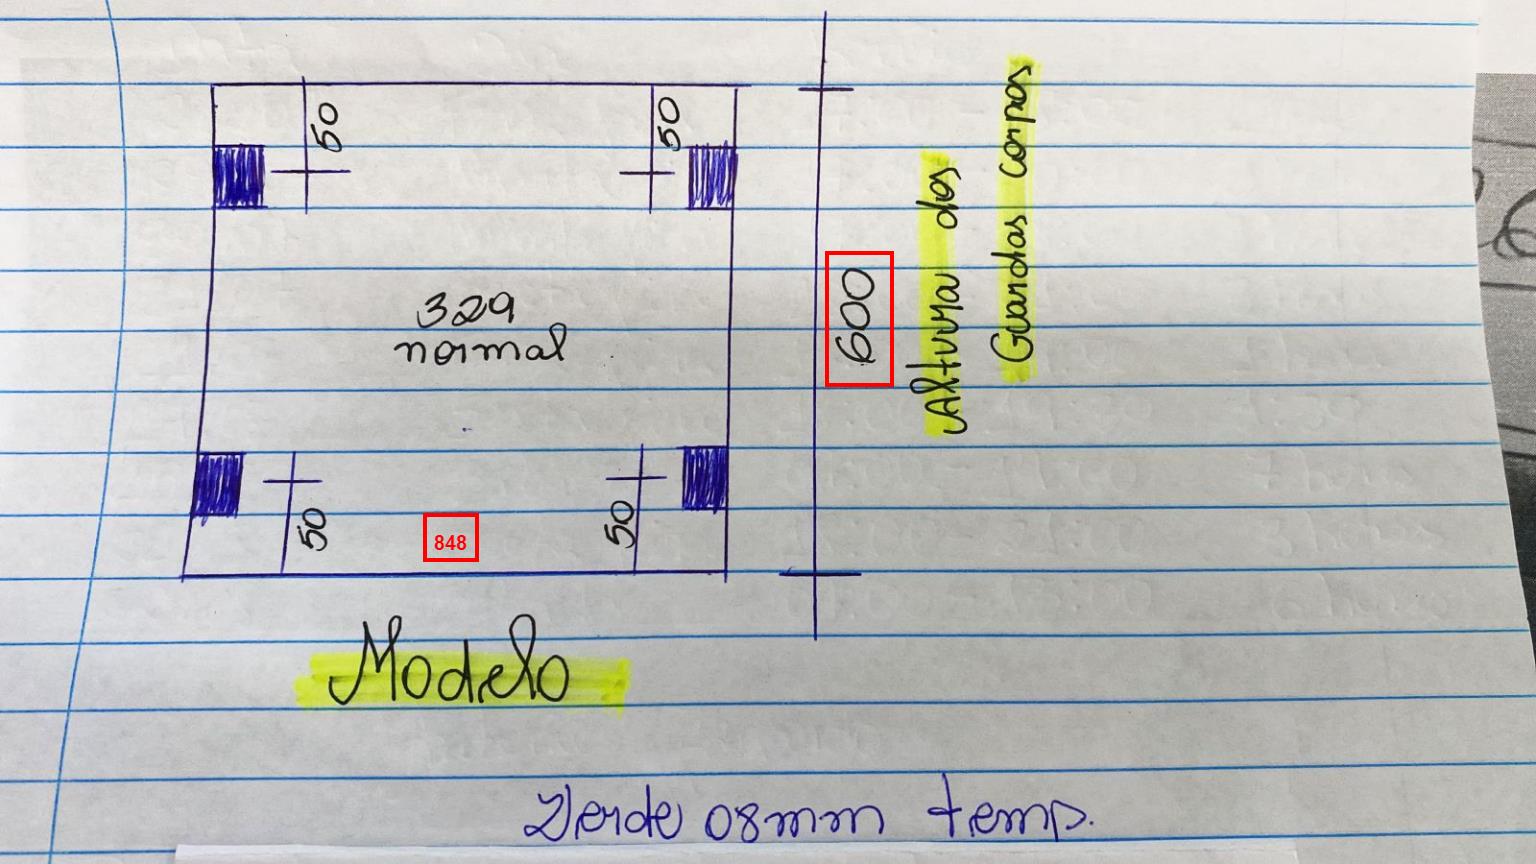 50
50
329
normal
50
848
50
600
Altura dos
Guardas corpos
Modelo
Verde 08mm temp.